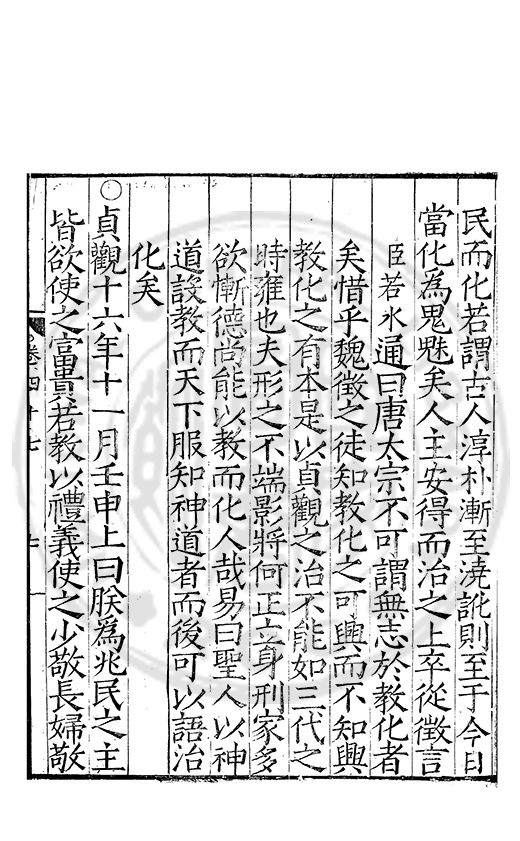 民而化若謂古人淳朴漸至澆訛則至于今日
當化為鬼魅矣人主安得而治之上卒從徵言
臣若水通曰唐太宗不可謂無志於教化者
矣惜乎魏徵之徒知教化之可興而不知興
教化之有本是以貞觀之治不能如三代之
時雍也夫形之不端影將何正立身刑家多
欲慚德尚能以教而化人哉易曰聖人以神
道設教而天下服知神道者而後可以語治
化矣
○貞觀十六年十一月壬申上曰朕為兆民之主
皆欲使之富貴若教以禮義使之少敬長婦敬
卷四十七
七